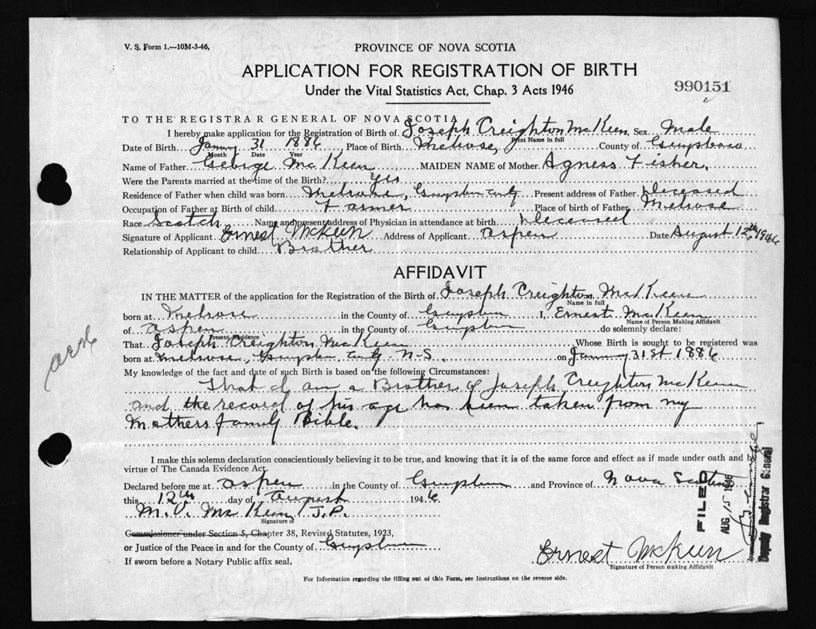 V. S. Form 1.—10M-3-46,
PROVINCE OF NOVA SCOTIA
APPLICATION FOR REGISTRATION OF BIRTH
990151
Under the Vital Statistics Act, Chap. 3 Acts 1946
TO THE REGISTRAR GENERAL OF NOVA SCOTIA
I hereby make application for the Registration of Birth of Joseph Creighton McKeen Sex Male
Print Name in full
Date of Birth January 31 1886 Place of Birth Melrose, County of Guysboro
Month Date Year
Name of Father George McKeen MAIDEN NAME of Mother Agness Fisher.
Were the Parents married at the time of the Birth? Yes
Residence of Father when child was born Melrose, Guysboro Present address of Father Deceased
Occupation of Father at Birth of child Farmer Place of birth of Father Melrose
Race Scotch Name and present address of Physician in attendance at birth Deceased
Signature of Applicant Ernest McKeen Address of Applicant Aspen Date August 12th, 1946
Relationship of Applicant to child Brother
AFFIDAVIT
IN THE MATTER of the application for the Registration of Birth of Joseph Creighton McKeen
Name in full
born at Melrose in the County of Guysboro I, Ernest McKeen
Name of Person Making Affidavit
of Aspen in the County of Guysboro do solemnly declare:
Present Residence
That Joseph Creighton McKeen Whose Birth is sought to be registered was
born at Melrose, Guysboro N.S. on January 31st 1886
My knowledge of the fact and date of such Birth is based on the following Circumstances:
That I am a Brother of Joseph Creighton McKeen
and the record of his age has been taken from my
Mothers family Bible.
I make this solemn declaration conscientiously believing it to be true, and knowing that it is of the same force and effect as if made under oath and by
virtue of The Canada Evidence Act.
Declared before me at Aspen in the County of Guysboro and Province of Nova Scotia
this 12th day of August 1946
M. V. McKeen J.P.
Signature of
Commissioner under Section 5, Chapter 38, Revised Statutes, 1923,
or Justice of the Peace in and for the County of Guysboro
If sworn before a Notary Public affix seal.
Ernest McKeen
Signature of Person making Affidavit
For Information regarding the filling out of this Form, see Instructions on the reverse side.
FILED
AUG 15 1946
Deputy Registrar General